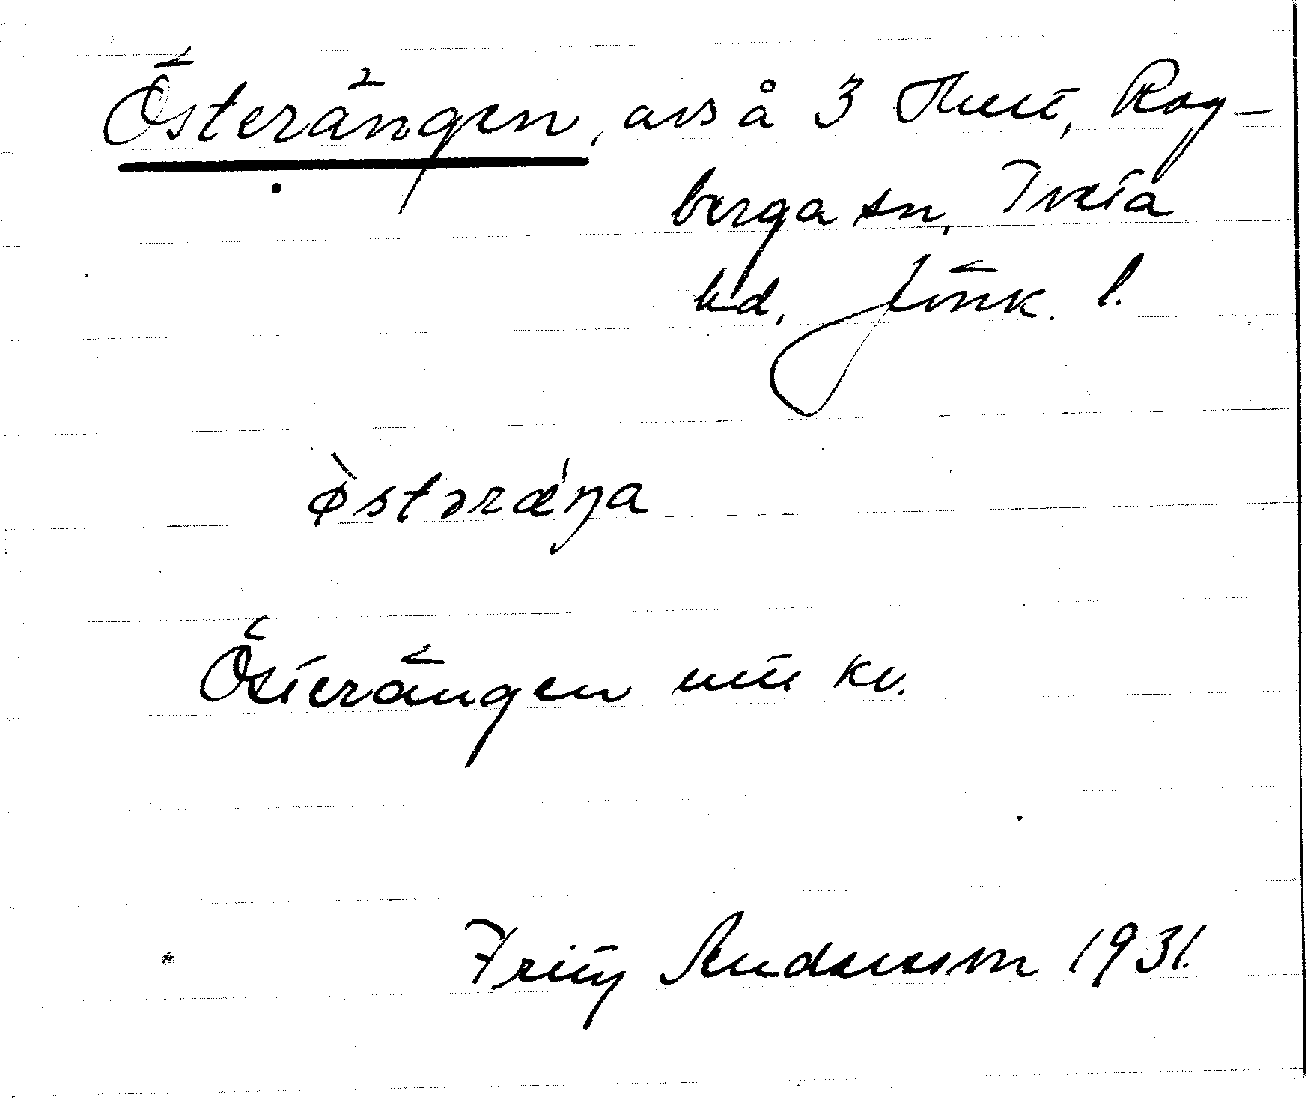 Österängen, avs å 3 Rog-
berga sn, Tveta
hd, Jönk. l.
ø̀stərǽŋa
Österängen utt kv.
Fritz Andersson 1931.